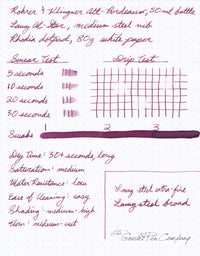 Rohrer & Klingner Alt-Bordeaux, 50 ml bottle
Lamy Al-Star, medium steel nib
Rhodia dotpad, 80g white paper
Smear Test
Drip Test
5 seconds
10 seconds
20 seconds
30 seconds
Swabs
1
2
3
Dry Time: 30+ seconds, long
Saturation: medium
Water Resistance: low
Ease of Cleaning: easy
Shading: medium-high
Flow: medium-wet
Lamy steel extra-fine
Lamy steel broad
The Goulet Pen Company